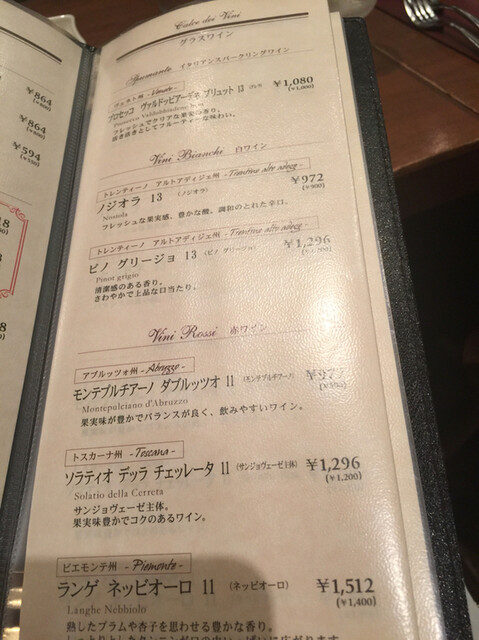 ¥864
¥864
¥594
Calce dei Vini
グラスワイン
Spumante イタリアンスパークリングワイン
ヴェネト州 - Veneto -
プロセッコ ヴァルドッビアーデネ ブリュット 13
¥1,080
(¥1,000)
Prosecco Valdobbiadene
フレッシュでクリアな果実の香り。
活き活きとしてフルーティーな味わい。
Vini Bianchi 白ワイン
トレンティーノ アルトアディジェ州 - Trentino alto adige -
ノジオラ 13 (ノジオラ)
¥972
(¥900)
Nosiola
フレッシュな果実感、豊かな酸。調和のとれた辛口。
トレンティーノ アルトアディジェ州 - Trentino alto adige -
ピノ グリージョ 13 (ピノ グリージョ)
¥1,296
Pinot grigio
清潔感のある香り。
さわやかで上品な口当たり。
Vini Rossi 赤ワイン
アブルッツォ州 - Abruzzo -
モンテプルチアーノ ダブルッツオ 11 (モンテプルチアーノ)
¥972
Montepulciano d'Abruzzo
果実味が豊かでバランスが良く、飲みやすいワイン。
トスカーナ州 - Toscana -
ソラティオ デッラ チェッレータ 11 (サンジョヴェーゼ主体)
¥1,296
(¥1,200)
Solatio della Cerreta
サンジョヴェーゼ主体。
果実味豊かでコクのあるワイン。
ピエモンテ州 - Piemonte -
ランゲ ネッビオーロ 11 (ネッビオーロ)
¥1,512
(¥1,400)
Langhe Nebbiolo
熟したプラムや杏子を思わせる豊かな香り。